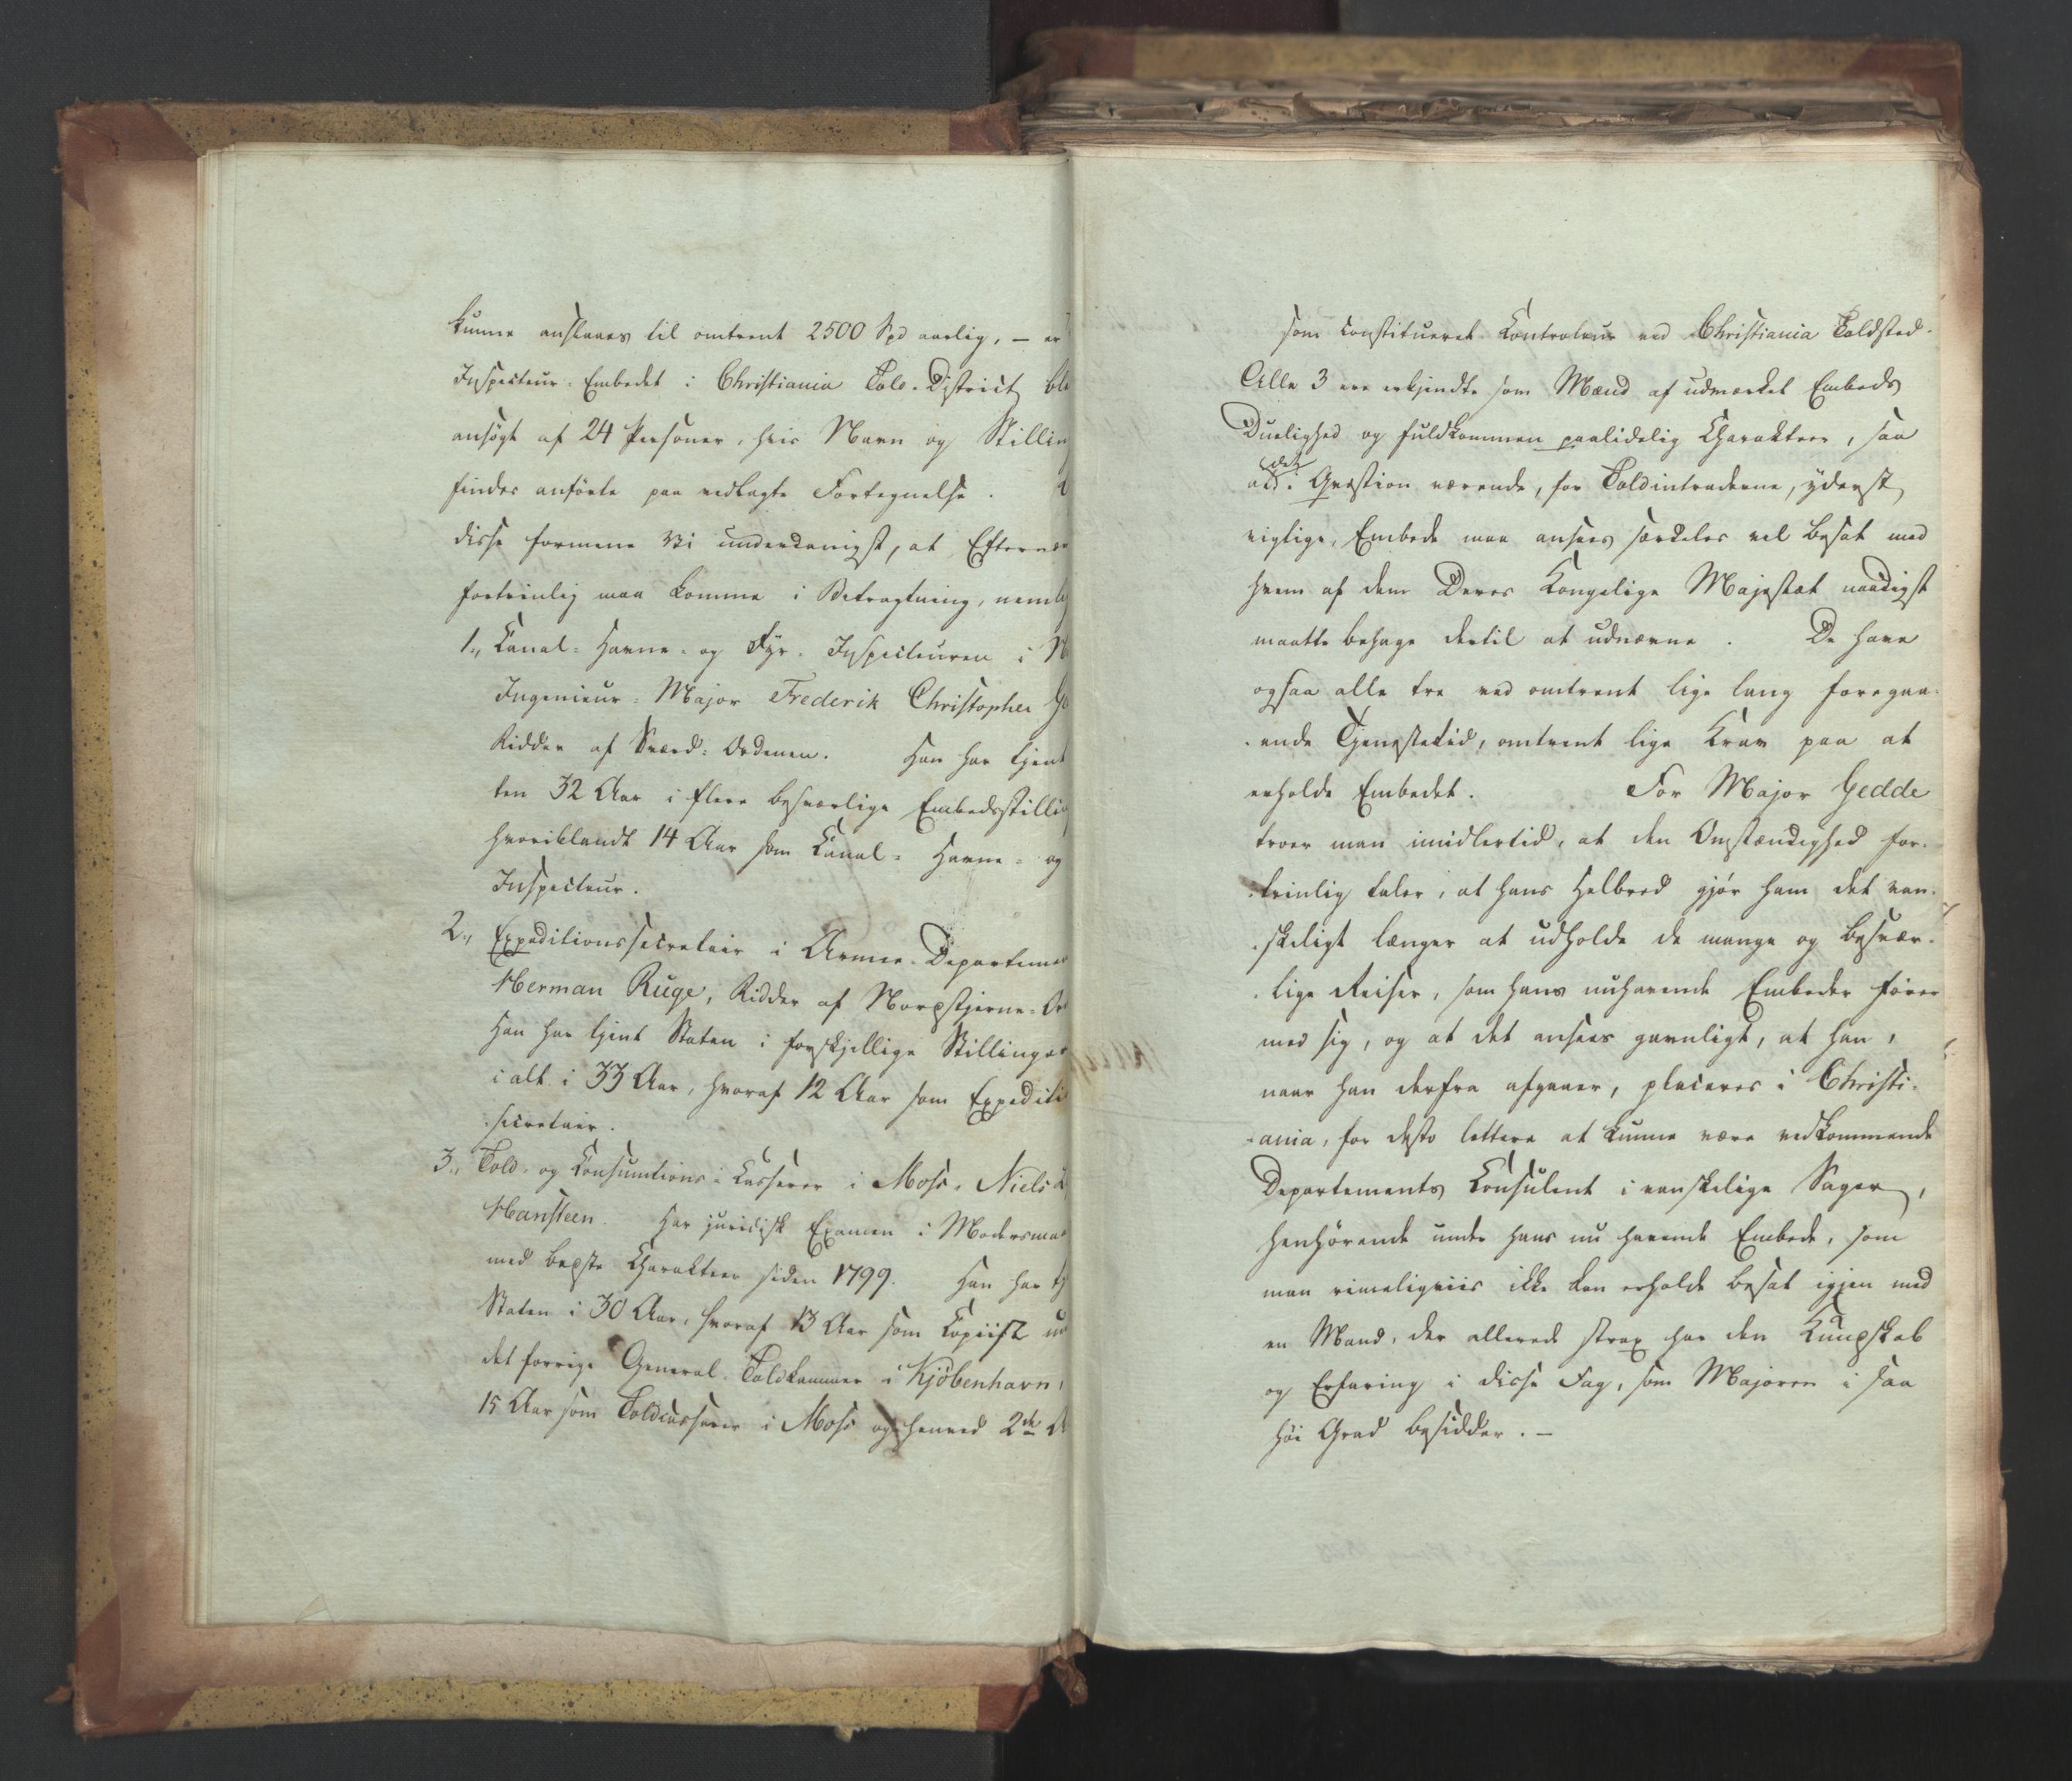 kunne anslaaes til omtrent 2500 Spd aarlig, – er
Inspecteur-Embedet i Christiania Told-District ble
ansøgt af 24 Personer, hvis Navn og Stillin
findes anførte paa vedlagte Fortegnelse.
disse formene Vi underdanigst, at Efternæ
fortrinlig maa komme i Betragtning, nemlig
1., Canal- Havne- og Fyr-Inspecteuren i N
Ingenieur-Major Frederik Christopher Ge
Ridder af Sværd-Ordenen. Han har tjent
ten 32 Aar i flere besværlige Embedsstillin
hvoriblandt 14 Aar som Canal- Havne- og
Inspecteur.
2., Expeditionssecretair i Armee-Departemen
Herman Ruge, Ridder af Nordstjerne-Or
Han har tjent Staten i forskjellige Stillinger
i alt i 33 Aar, hvoraf 12 Aar som Expediti
secretair.
3., Told- og Consumtions-Casserer i Moss, Niels
Hansteen. Har juridisk Examen i Modersmaa
med bedste Charakteer siden 1799. Han har tj
Staten i 30 Aar, hvoraf 13 Aar som Copiist un
det forrige General-Toldkammer i Kjöbenhavn,
15 Aar som Toldcasserer i Moss og henved 2de A
som constitueret Controleur ved Christiania Toldsted.
Alle 3 ere erkjendte som Mænd af udmærket Embeds
Duelighed og fuldkommen paalidelig Charakteer, saa
at det i Qvæstion værende, for Toldintraderne, yderst
vigtige, Embede maa ansees særdeles vel besat med
hvem af dem Deres Kongelige Majestæt naadigst
maatte behage dertil at udnævne. De have
ogsaa alle tre ved omtrent lige lang foregaa-
-ende Tjenestetid, omtrent lige Krav paa at
erholde Embedet. For Major Gedde
troer man imidlertid, at den Omstændighed for-
-trinlig taler, at hans Helbred gjør ham det van-
-skeligt længer at udholde de mange og besvær-
-lige Reiser, som hans nuhavende Embeder fører
med sig, og at det ansees gavnligt, at han,
naar han derfra afgaaer, placeres i Christi-
-ania, for desto lettere at kunne være vedkommende
Departements Consulent i vanskelige Sager,
henhørende under hans nu havende Embede, som
man rimeligviis ikke kan erholde besat igjen med
en Mand, der allerede strax har den Kundskab
og Erfaring i disse Fag, som Majoren i saa
høi Grad besidder. –